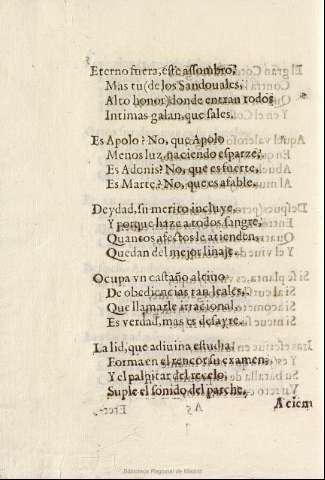 Eterno fuera, este assombro;
Mas tu (de los Sandouales,
Alto honor) donde entran todos
Intimas galan, que sales.
Es Apolo? No, que Apolo
Menos luz, naciendo esparze;
Es Adonis? No, que es fuerte,
Es Marte? No, que es afable,
Deydad, su merito incluye,
Y porque haze a todos sangre,
Quantos afectos le atienden,
Quedan del mejor linaje.
Ocupa vn castaño aleiuo
De obediencias tan leales,
Que llamarle irracional,
Es verdad, mas es desayre.
La lid, que adiuina escucha,
Forma en el rencor su examen,
Y el palpitar del recelo,
Suple el sonido del parche,
A 5
Biblioteca Regional de Madrid